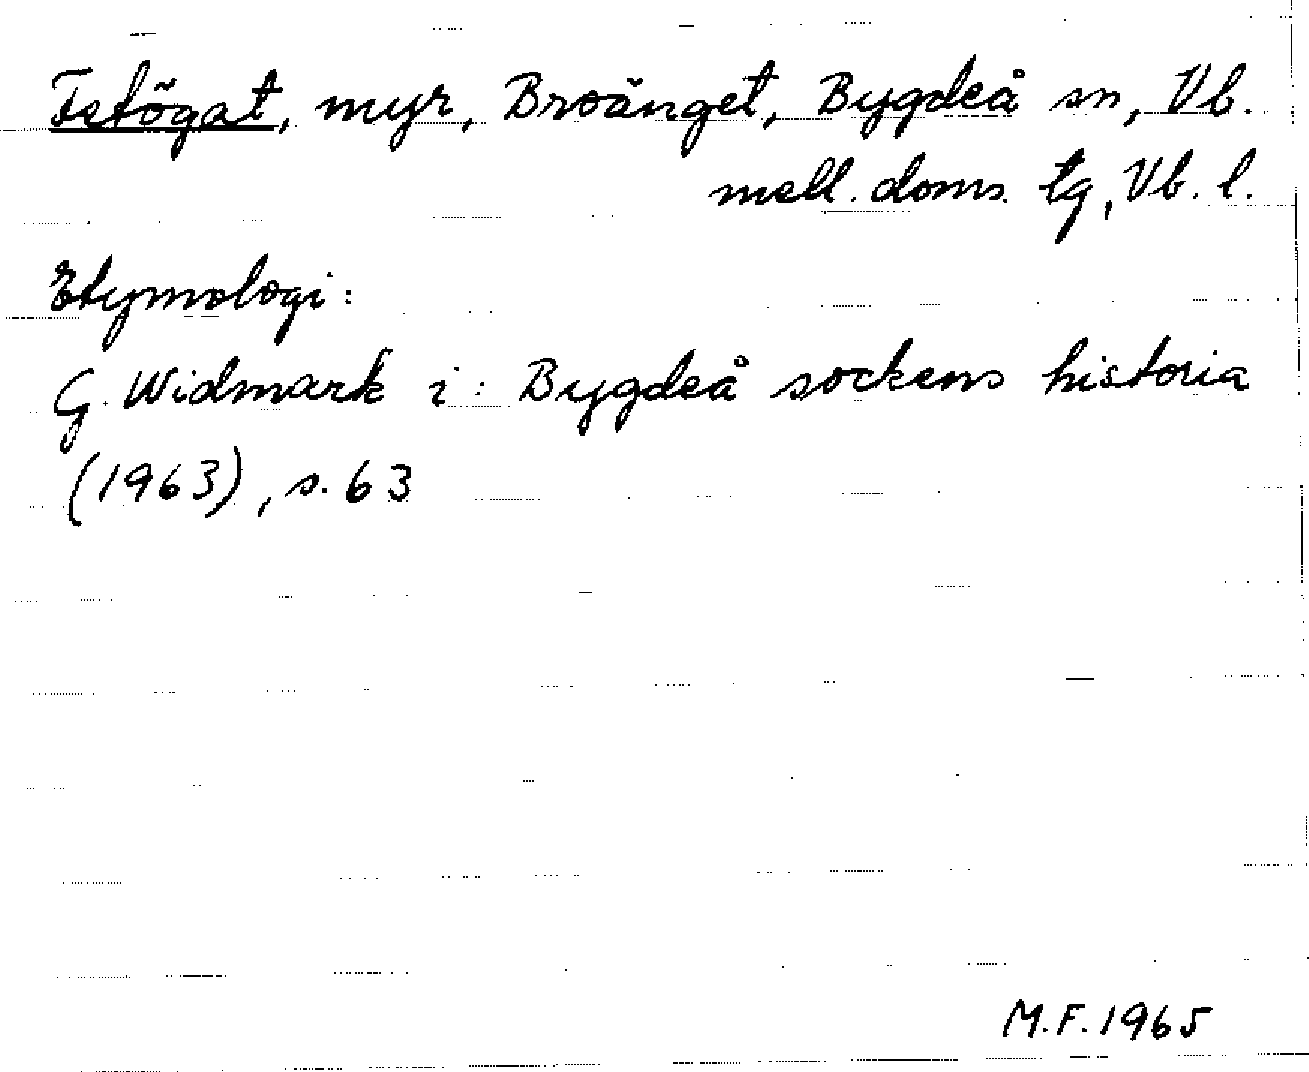 Tstögat, myr, Broänget, Bygdeå sn, Vb.
mell. doms. tg, Vb. l.
Etymologi:
G. Widmark i: Bygdeå sockens historia
(1963), s. 63
M.F. 1965